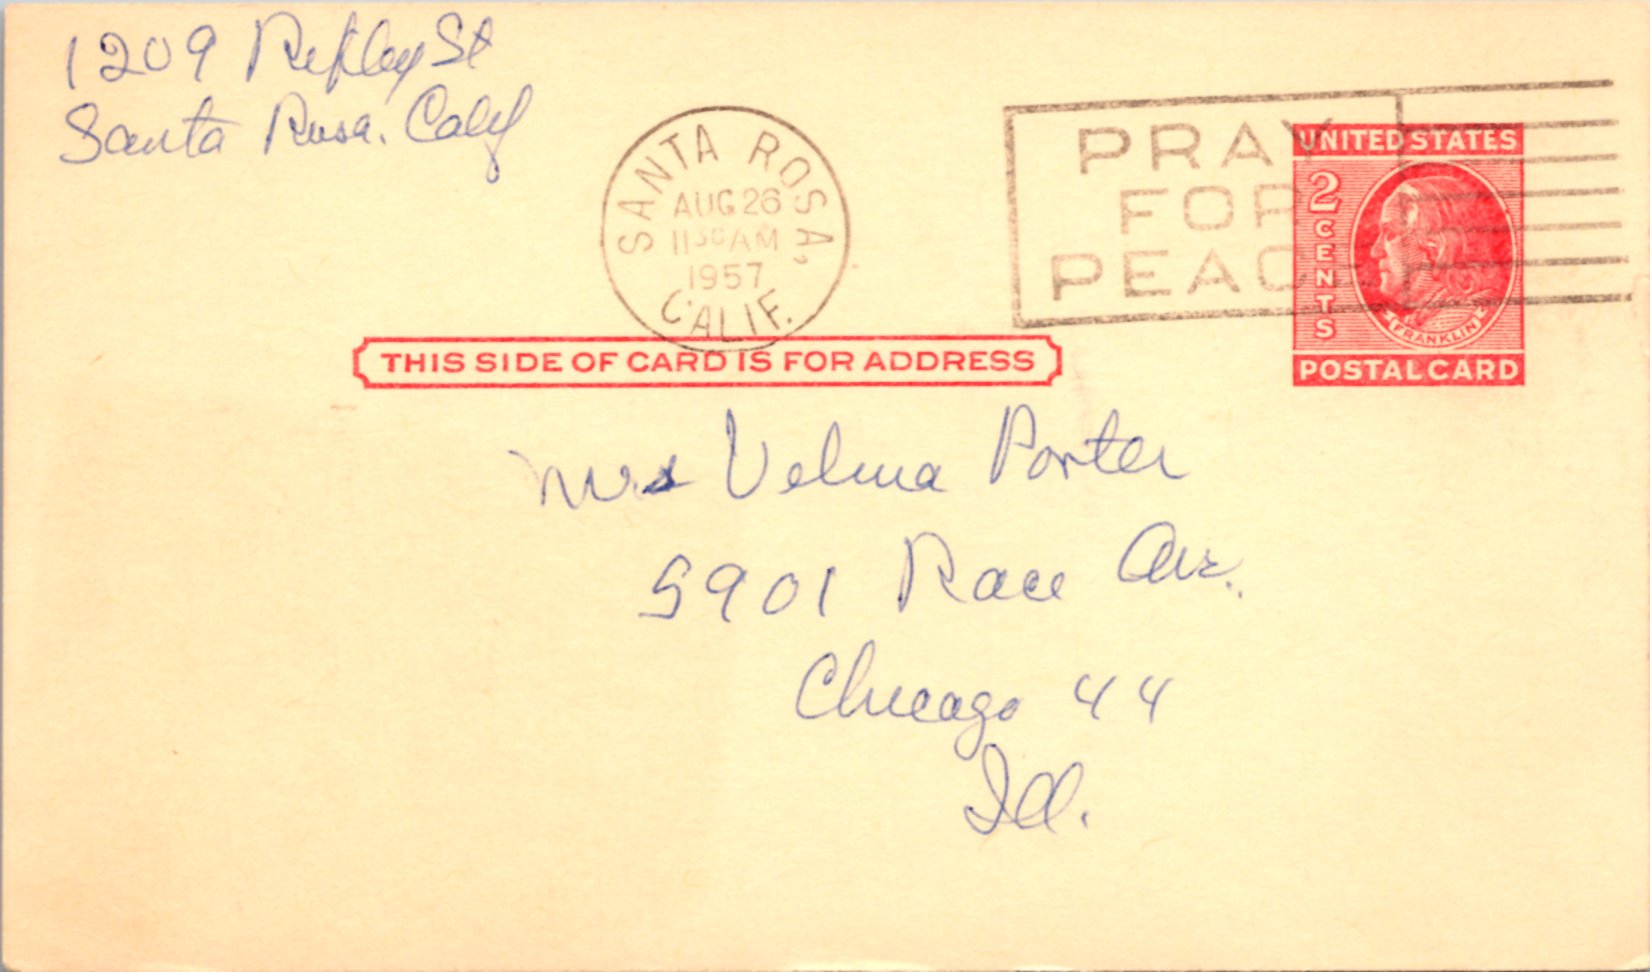 1209 Ripley St
Santa Rosa. Calif
SANTA ROSA,
AUG 26
11 30 AM
1957
CALIF.
PRAY
FOR
PEACE
UNITED STATES
2 CENTS
FRANKLIN
POSTAL CARD
THIS SIDE OF CARD IS FOR ADDRESS
Mrs Velma Porter
5901 Race Ave.
Chicago 44
Ill.